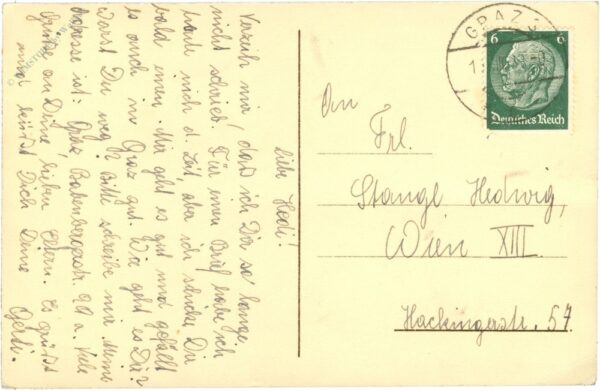 Liebe Hedi!
Verzeih mir, dass ich Dir so lange
nicht schrieb. Für einen Brief habe ich
heute nicht d. Zeit, aber ich schicke Dir
bald einen. Mir geht es gut und gefällt
es auch in Graz gut. Wie geht es Dir?
Warst Du weg? Bitte schreibe mir. Meine
Adresse ist: Graz, a. Viele
Grüße an Deine lieben Eltern. Es grüßt
und küsst Dich Deine
Gerti.
GRAZ
6 6
Deutsches Reich
An
Frl.
Stangl Hedwig,
Wien XIII
Hackingerstr. 57